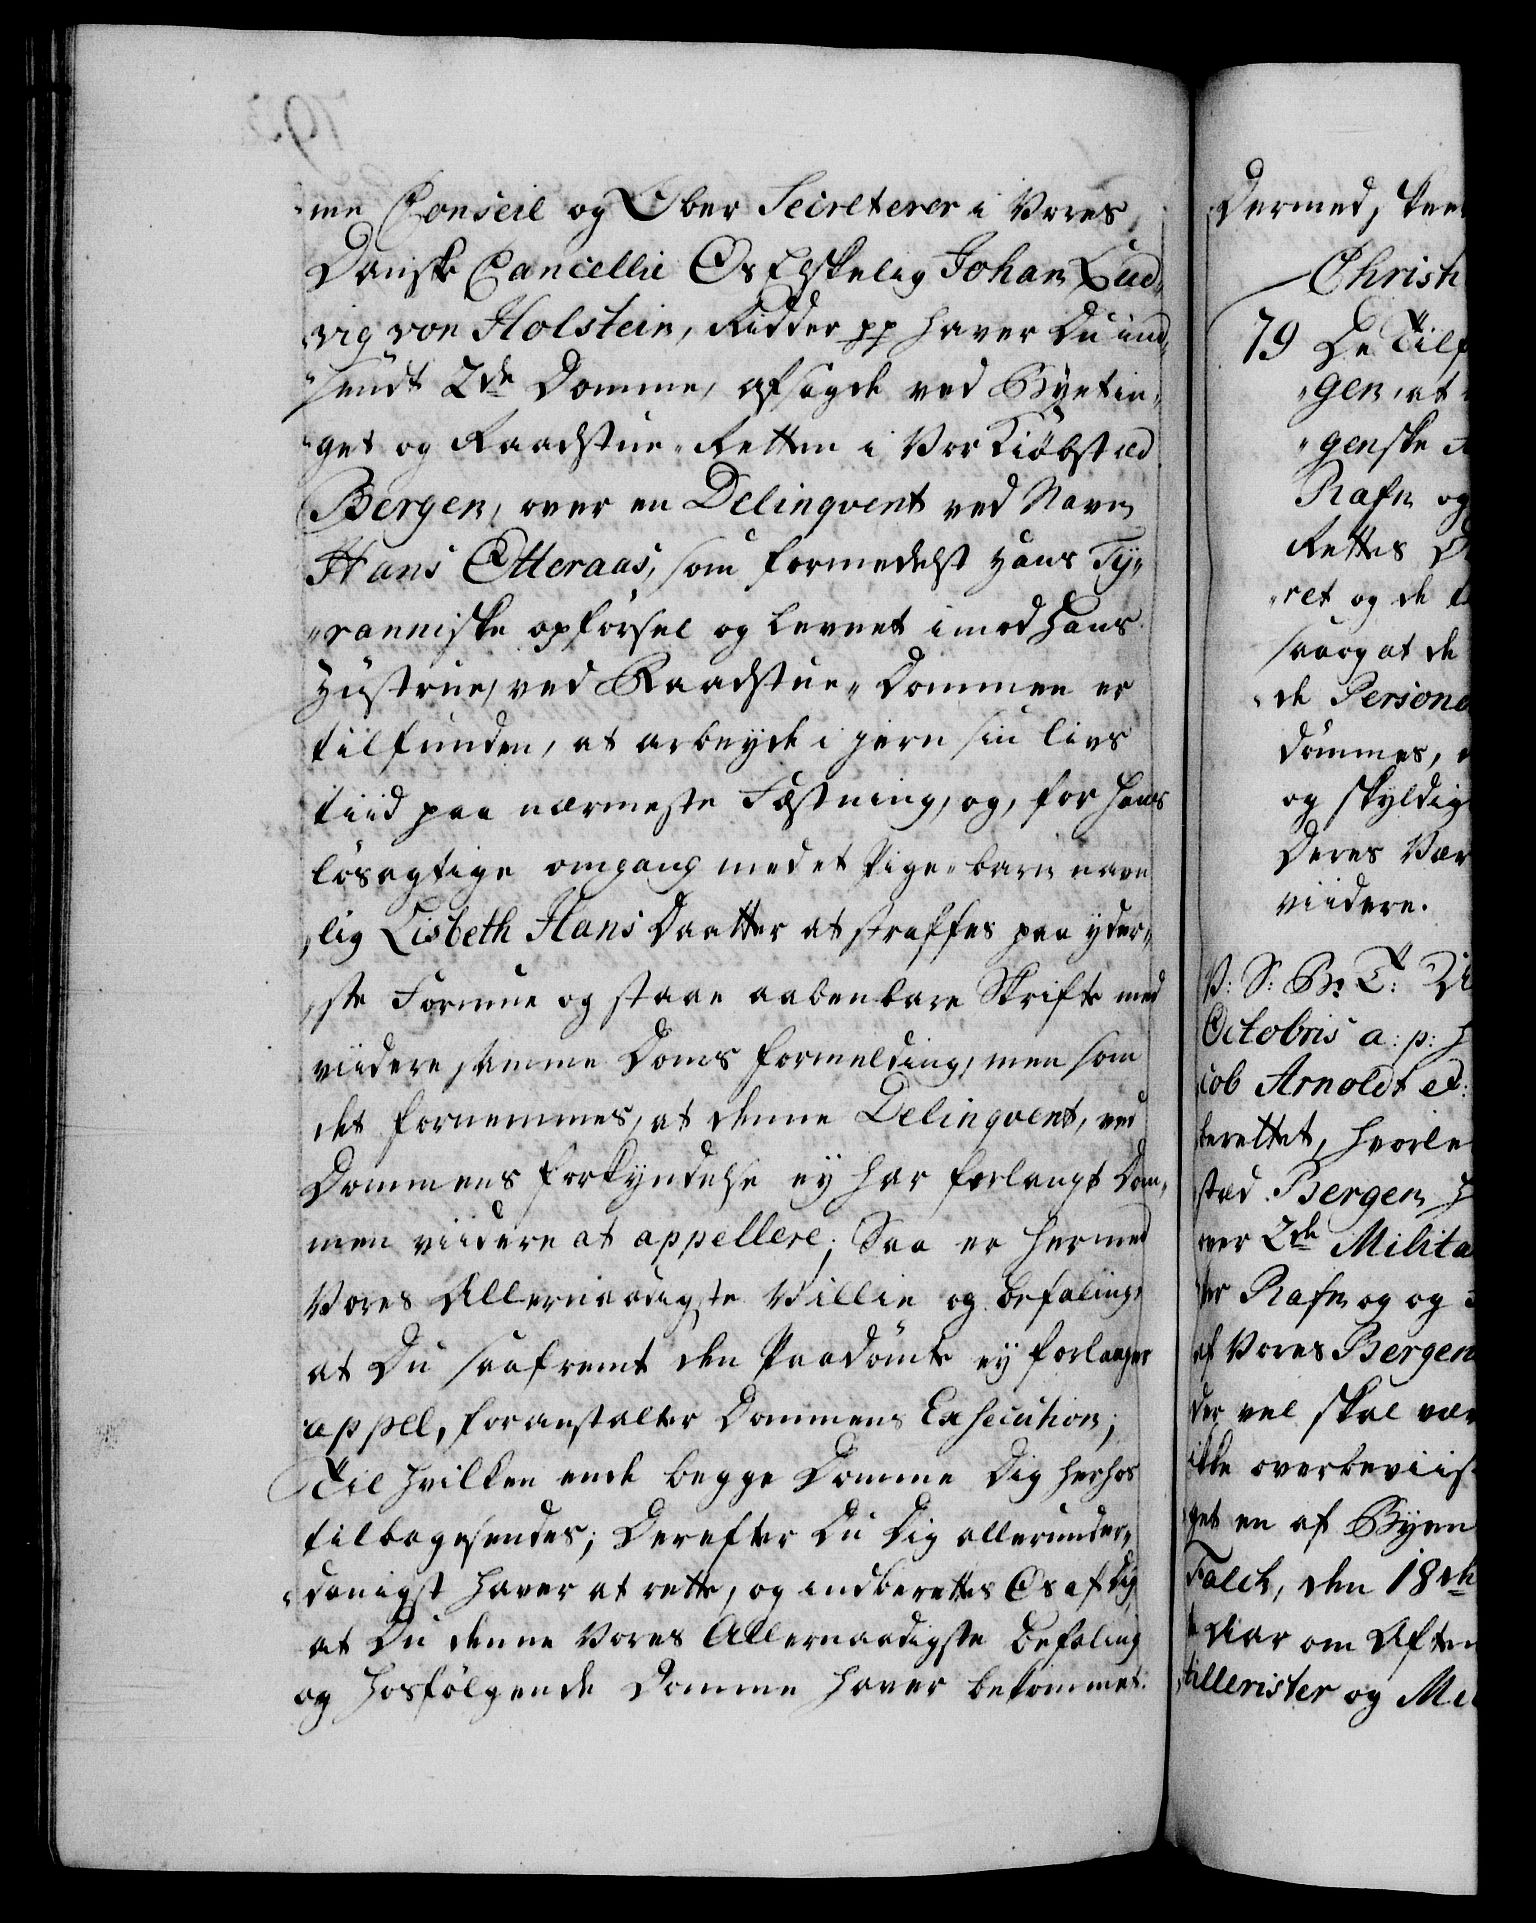 -me Conseil og Ober Secreterer i Vores
Danske Cancellie Os Elskelig Johan Lud-
-vig von Holstein, Ridder pp haver Du ind-
-sendt 2de Domme, afsagde ved Byetin-
-get og Raadstue-Retten i Vor Kiøbstæd
Bergen, over en Delinqvent ved Navn
Hans Otteraas, som formedelst hans Ty-
-ranniske opførsel og levnet imod hans
Hustrue, ved Raadstue-Dommen er
tilfunden, at arbeyde i jern sin livs
tiid paa nærmeste Fæstning, og, for hans
løsagtige omgang med et Pige-barn navn
-lig Lisbeth Hans Daatter at straffes paa yder-
-ste Formue og staae aabenbare Skrifte med
viidere samme Doms formelding, men som
det fornemmes, at denne Delinqvent, ved
Dommens forkyndelse ey har forlangt Dom-
men viidere at appellere; Saa er hermed
Vores Allernaadigste Villie og befaling,
at Du saafremt den Paadømte ey forlanger
appel, foranstalter Dommens Execution;
Til hvilken ende begge Domme Dig herhos
tilbagesendes; Derefter Du Dig allerunder-
-danigst haver at rette, og indberettes Os af Dig,
at Du denne Vores Allernaadigste befaling
og hosfølgende Domme haver bekommet.
Dermed, skee
Christi
79 De Tilf
-gen, at
-genske
Rafn og
Rettes
-ret og de
saa og at de
-de Persone
dømmes,
og skyldig
Deres Vær
viidere.
V: S: B: T:
Octobris a: p:
cob Arnoldt
berettet, hvorle
stæd Bergen
over 2de Milita
Rafn og og
af Vores Bergen
der vel skal vær
ikke overbeviist
get en af Byen
Falck, den 18de
Aar om Aften
tillerister og